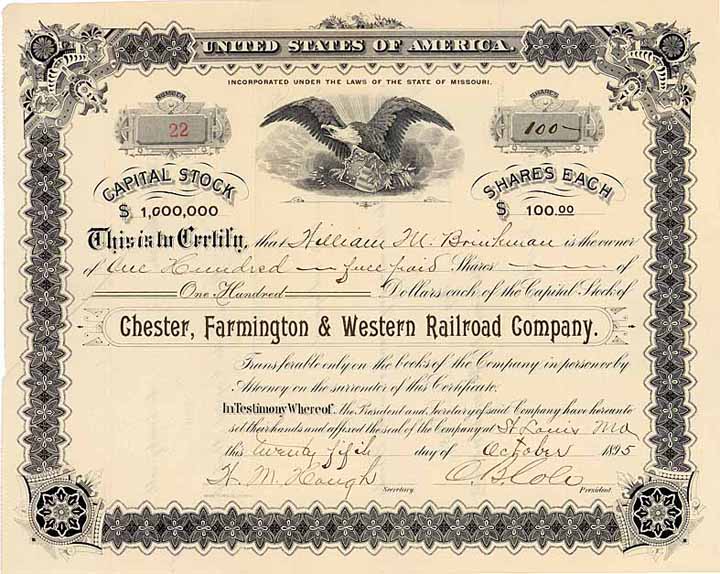 UNITED STATES OF AMERICA.
INCORPORATED UNDER THE LAWS OF THE STATE OF MISSOURI.
NUMBER
22
SHARES
100
CAPITAL STOCK
$ 1,000,000
SHARES EACH
$ 100.00
This is to Certify, that William M. Brinkman is the owner
of One Hundred full paid Shares of
One Hundred Dollars each of the Capital Stock of
Chester, Farmington & Western Railroad Company.
Transferable only on the books of the Company in person or by
Attorney on the surrender of this Certificate.
In Testimony Whereof, the President and Secretary of said Company have hereunto
set their hands and affixed the seal of the Company at St Louis Mo
this twenty fifth day of October 1895
H. M. Hough
Secretary.
C. B. Cole
President.